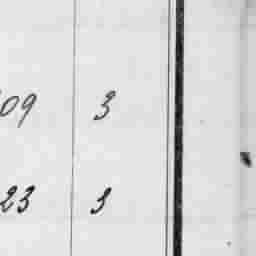 09 3
23 3